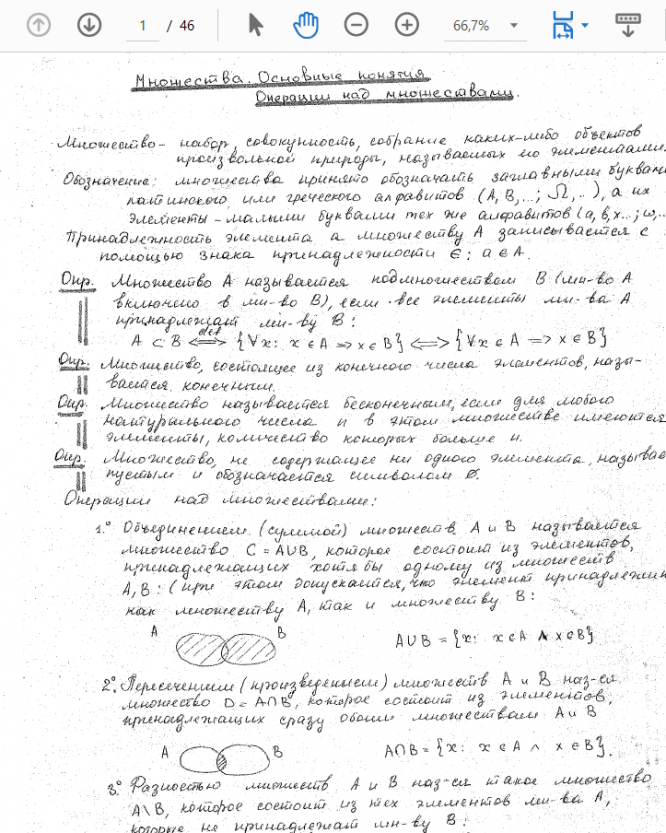 1 / 46 66,7%
Множества. Основные понятия
Операции над множествами.
Множество - набор, совокупность, собрание каких-либо объектов
произвольной природы, называемых его элементами.
Обозначение: множества принято обозначать заглавными буквами
латинского или греческого алфавитов (A, B,...; Ω,..), а их
элементы - малыми буквами тех же алфавитов (a, b, x...; ω,..
Принадлежность элемента a множеству A записывается с
помощью знака принадлежности ∈: a ∈ A.
Опр. Множество A называется подмножеством B (мн-во A
включено в мн-во B), если все элементы мн-ва A
принадлежат мн-ву B:
A ⊂ B ⟺ def {∀x: x ∈ A ⇒ x ∈ B} ⟺ {∀x ∈ A ⇒ x ∈ B}
Опр. Множество, состоящее из конечного числа элементов, назы-
вается конечным.
Опр. Множество называется бесконечным, если для любого
натурального числа n в этом множестве имеются
элементы, количество которых больше n.
Опр. Множество, не содержащее ни одного элемента, называе
пустым и обозначается символом ∅.
Операции над множествами:
1.° Объединением (суммой) множеств A и B называется
множество C = A∪B, которое состоит из элементов,
принадлежащих хотя бы одному из множеств
A, B: (при этом допускается, что элемент принадлежит
как множеству A, так и множеству B:
A B A∪B = {x: x∈A ∧ x∈B}
2.° Пересечением (произведением) множеств A и B наз-ся
множество D = A∩B, которое состоит из элементов,
принадлежащих сразу обоим множествам A и B
A B A∩B = {x: x∈A ∧ x∈B}.
3.° Разностью множеств A и B наз-ся такое множество
A\B, которое состоит из тех элементов мн-ва A,
которые не принадлежат мн-ву B: